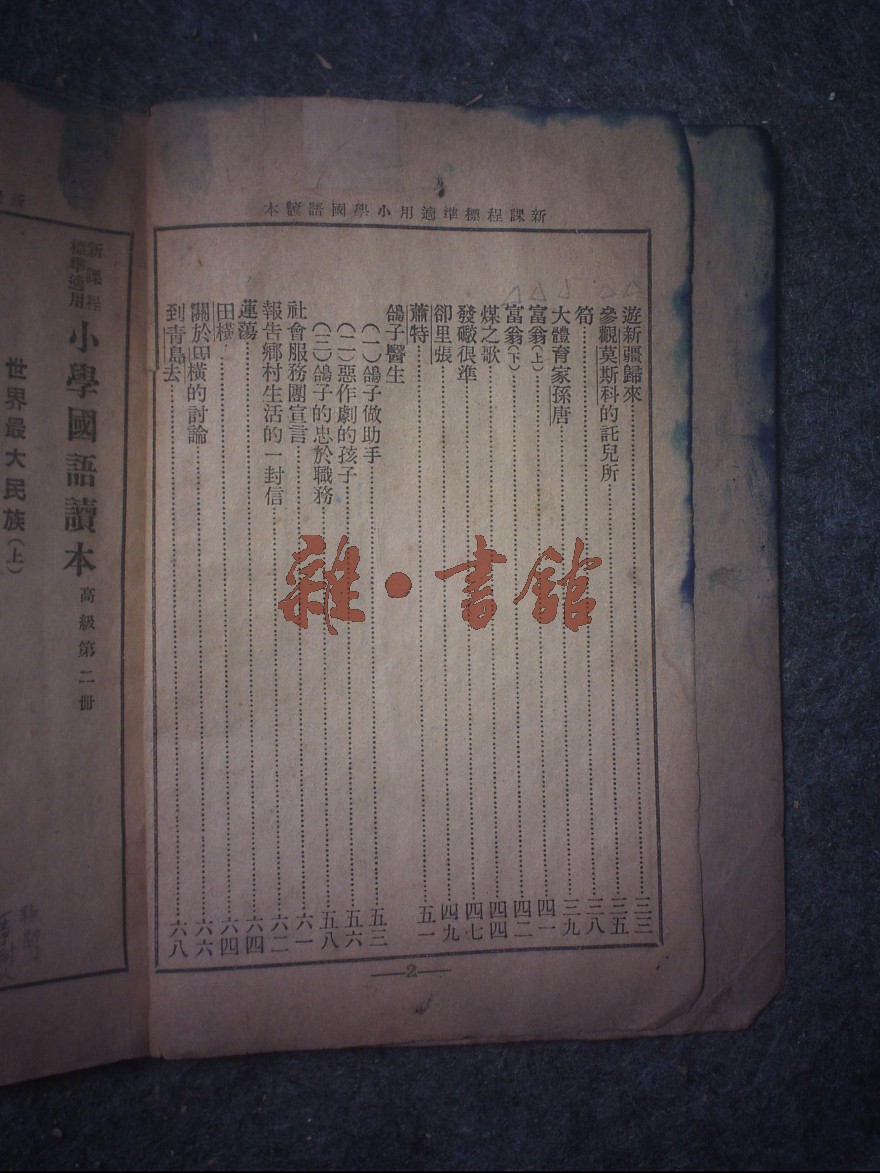 新課程標準適用小學國語讀本
遊新疆歸來……三三
參觀莫斯科的託兒所……三五
筍……三八
大體育家孫唐……三九
富翁(上)……四一
富翁(下)……四二
煤之歌……四四
發礮很準……四七
卻里張……四九
蕭特……五一
鴿子醫生
(一)鴿子做助手……五三
(二)惡作劇的孩子……五六
(三)鴿子的忠於職務……五八
社會服務團宣言……六一
報告鄉村生活的一封信……六二
蓮蕩……六四
田橫……六四
關於田橫的討論……六六
到青島去……六八
—2—
新課程標準適用
小學國語讀本 高級第二冊
世界最大民族(上)
雜·書館